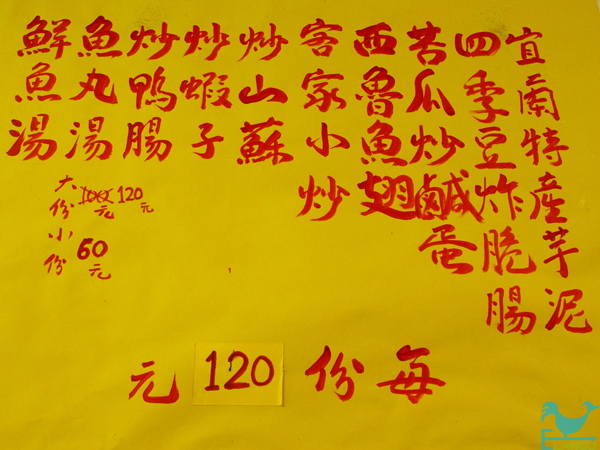 宜蘭特產芋泥
四季豆炸脆腸
苦瓜炒鹹蛋
西魯魚翅
客家小炒
炒山蘇
炒蝦子
炒鴨腸
魚丸湯
鮮魚湯
大份 120元
小份 60元
每份 120 元